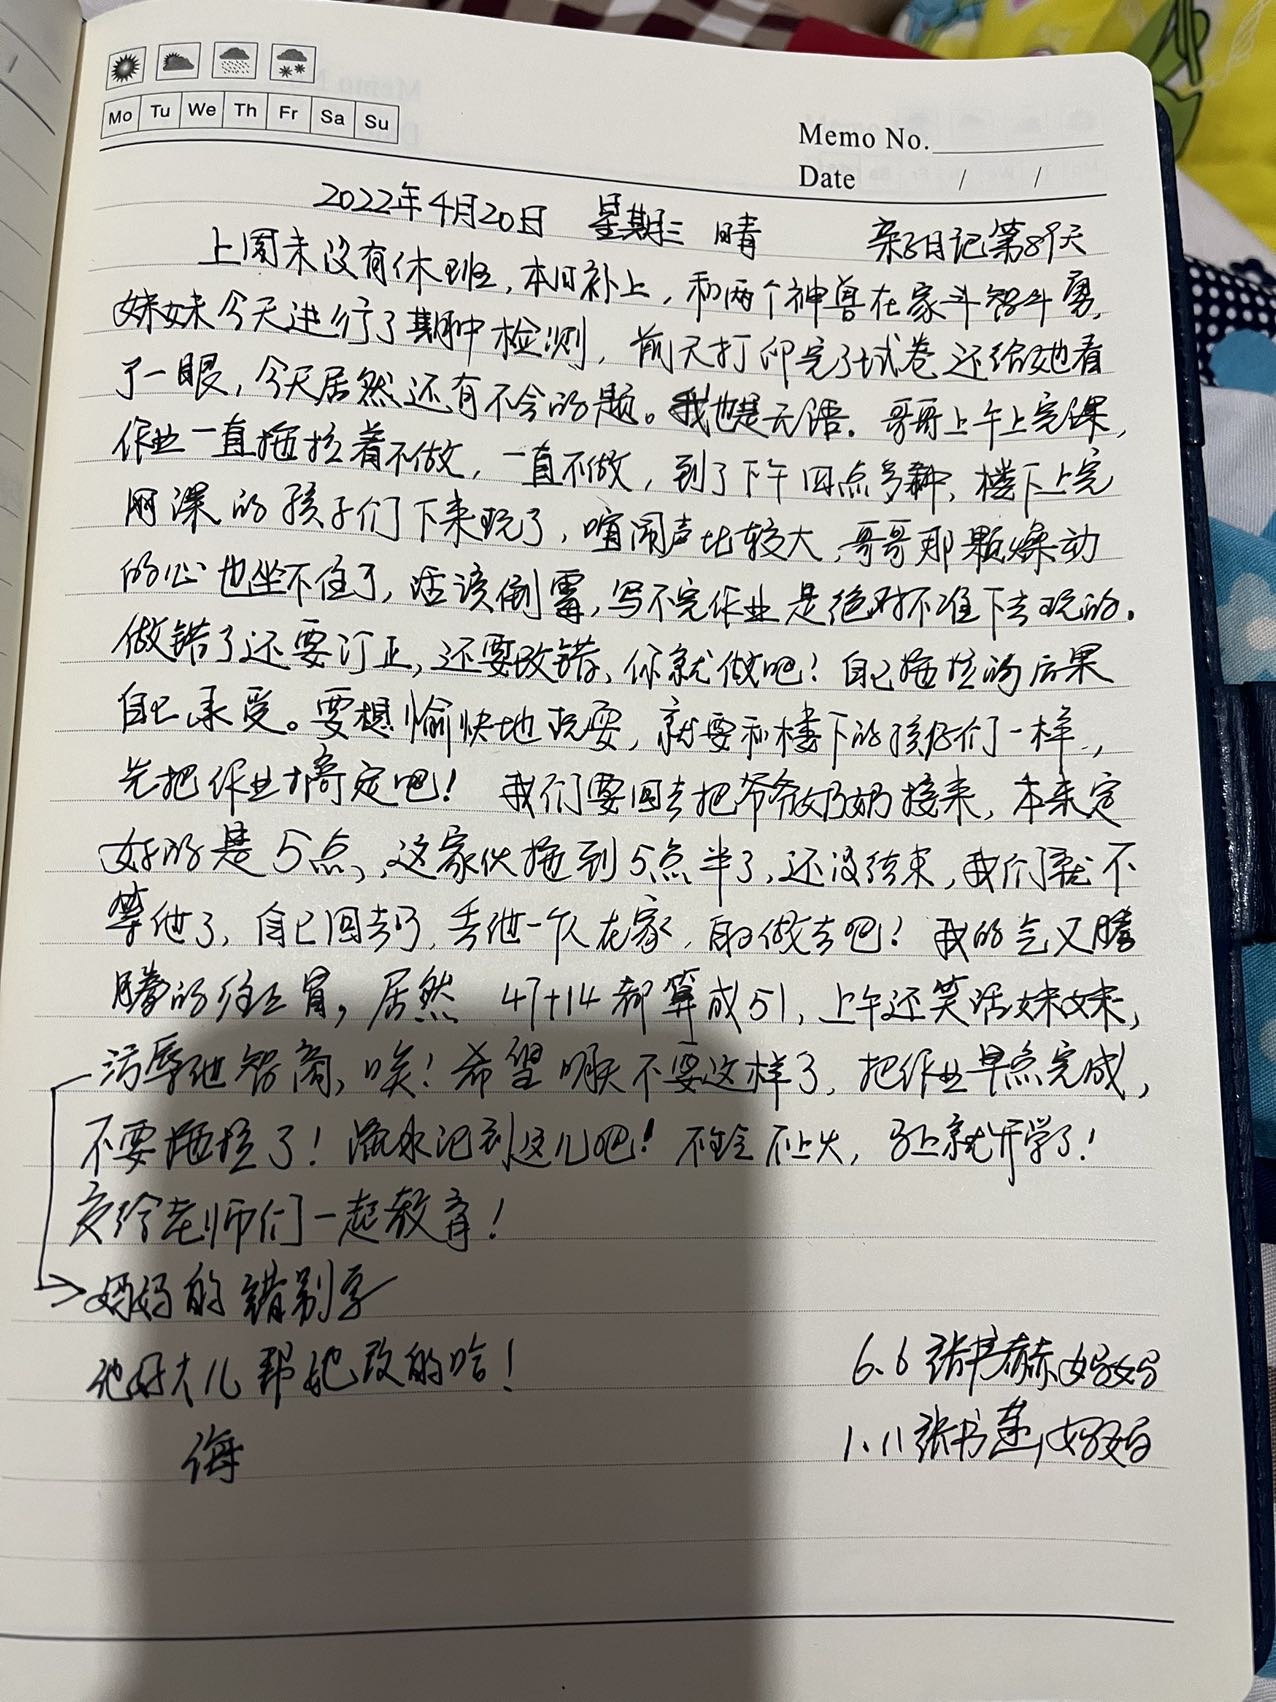 Mo Tu We Th Fr Sa Su
Memo No.
Date / /
2022年4月20日 星期三 晴 亲子日记第89天
上周末没有休班，本日补上，和两个神兽在家斗智斗勇，
妹妹今天进行了期中检测，前天打印完了试卷还给她看
了一眼，今天居然还有不会的题。我也是无语。哥哥上午上完课，
作业一直拖拉着不做，一直不做，到了下午四点多钟，楼下上完
网课的孩子们下来玩了，喧闹声比较大，哥哥那颗燥动
的心也坐不住了，活该倒霉，写不完作业是绝对不准下去玩的。
做错了还要订正，还要改错，你就做吧！自己拖拉的后果
自己承受。要想愉快地玩耍，就要和楼下的孩子们一样，
先把作业搞定吧！我们要回去把爷爷奶奶接来，本来定
好的是5点，这家伙拖到5点半了，还没结束，我们就不
等他了，自己回去了，丢他一个人在家，自己做去吧！我的气又腾
腾的往上冒，居然 47+14都算成51，上午还笑话妹妹，
污辱他智商，唉！希望明天不要这样了，把作业早点完成，
不要拖拉了！流水记到这儿吧！不生气不上火，马上就开学了！
交给老师们一起教育！
妈妈的错别字
他好大儿帮她改的哈！
侮
6.6 张书赫妈妈
1.11 张书莲妈妈